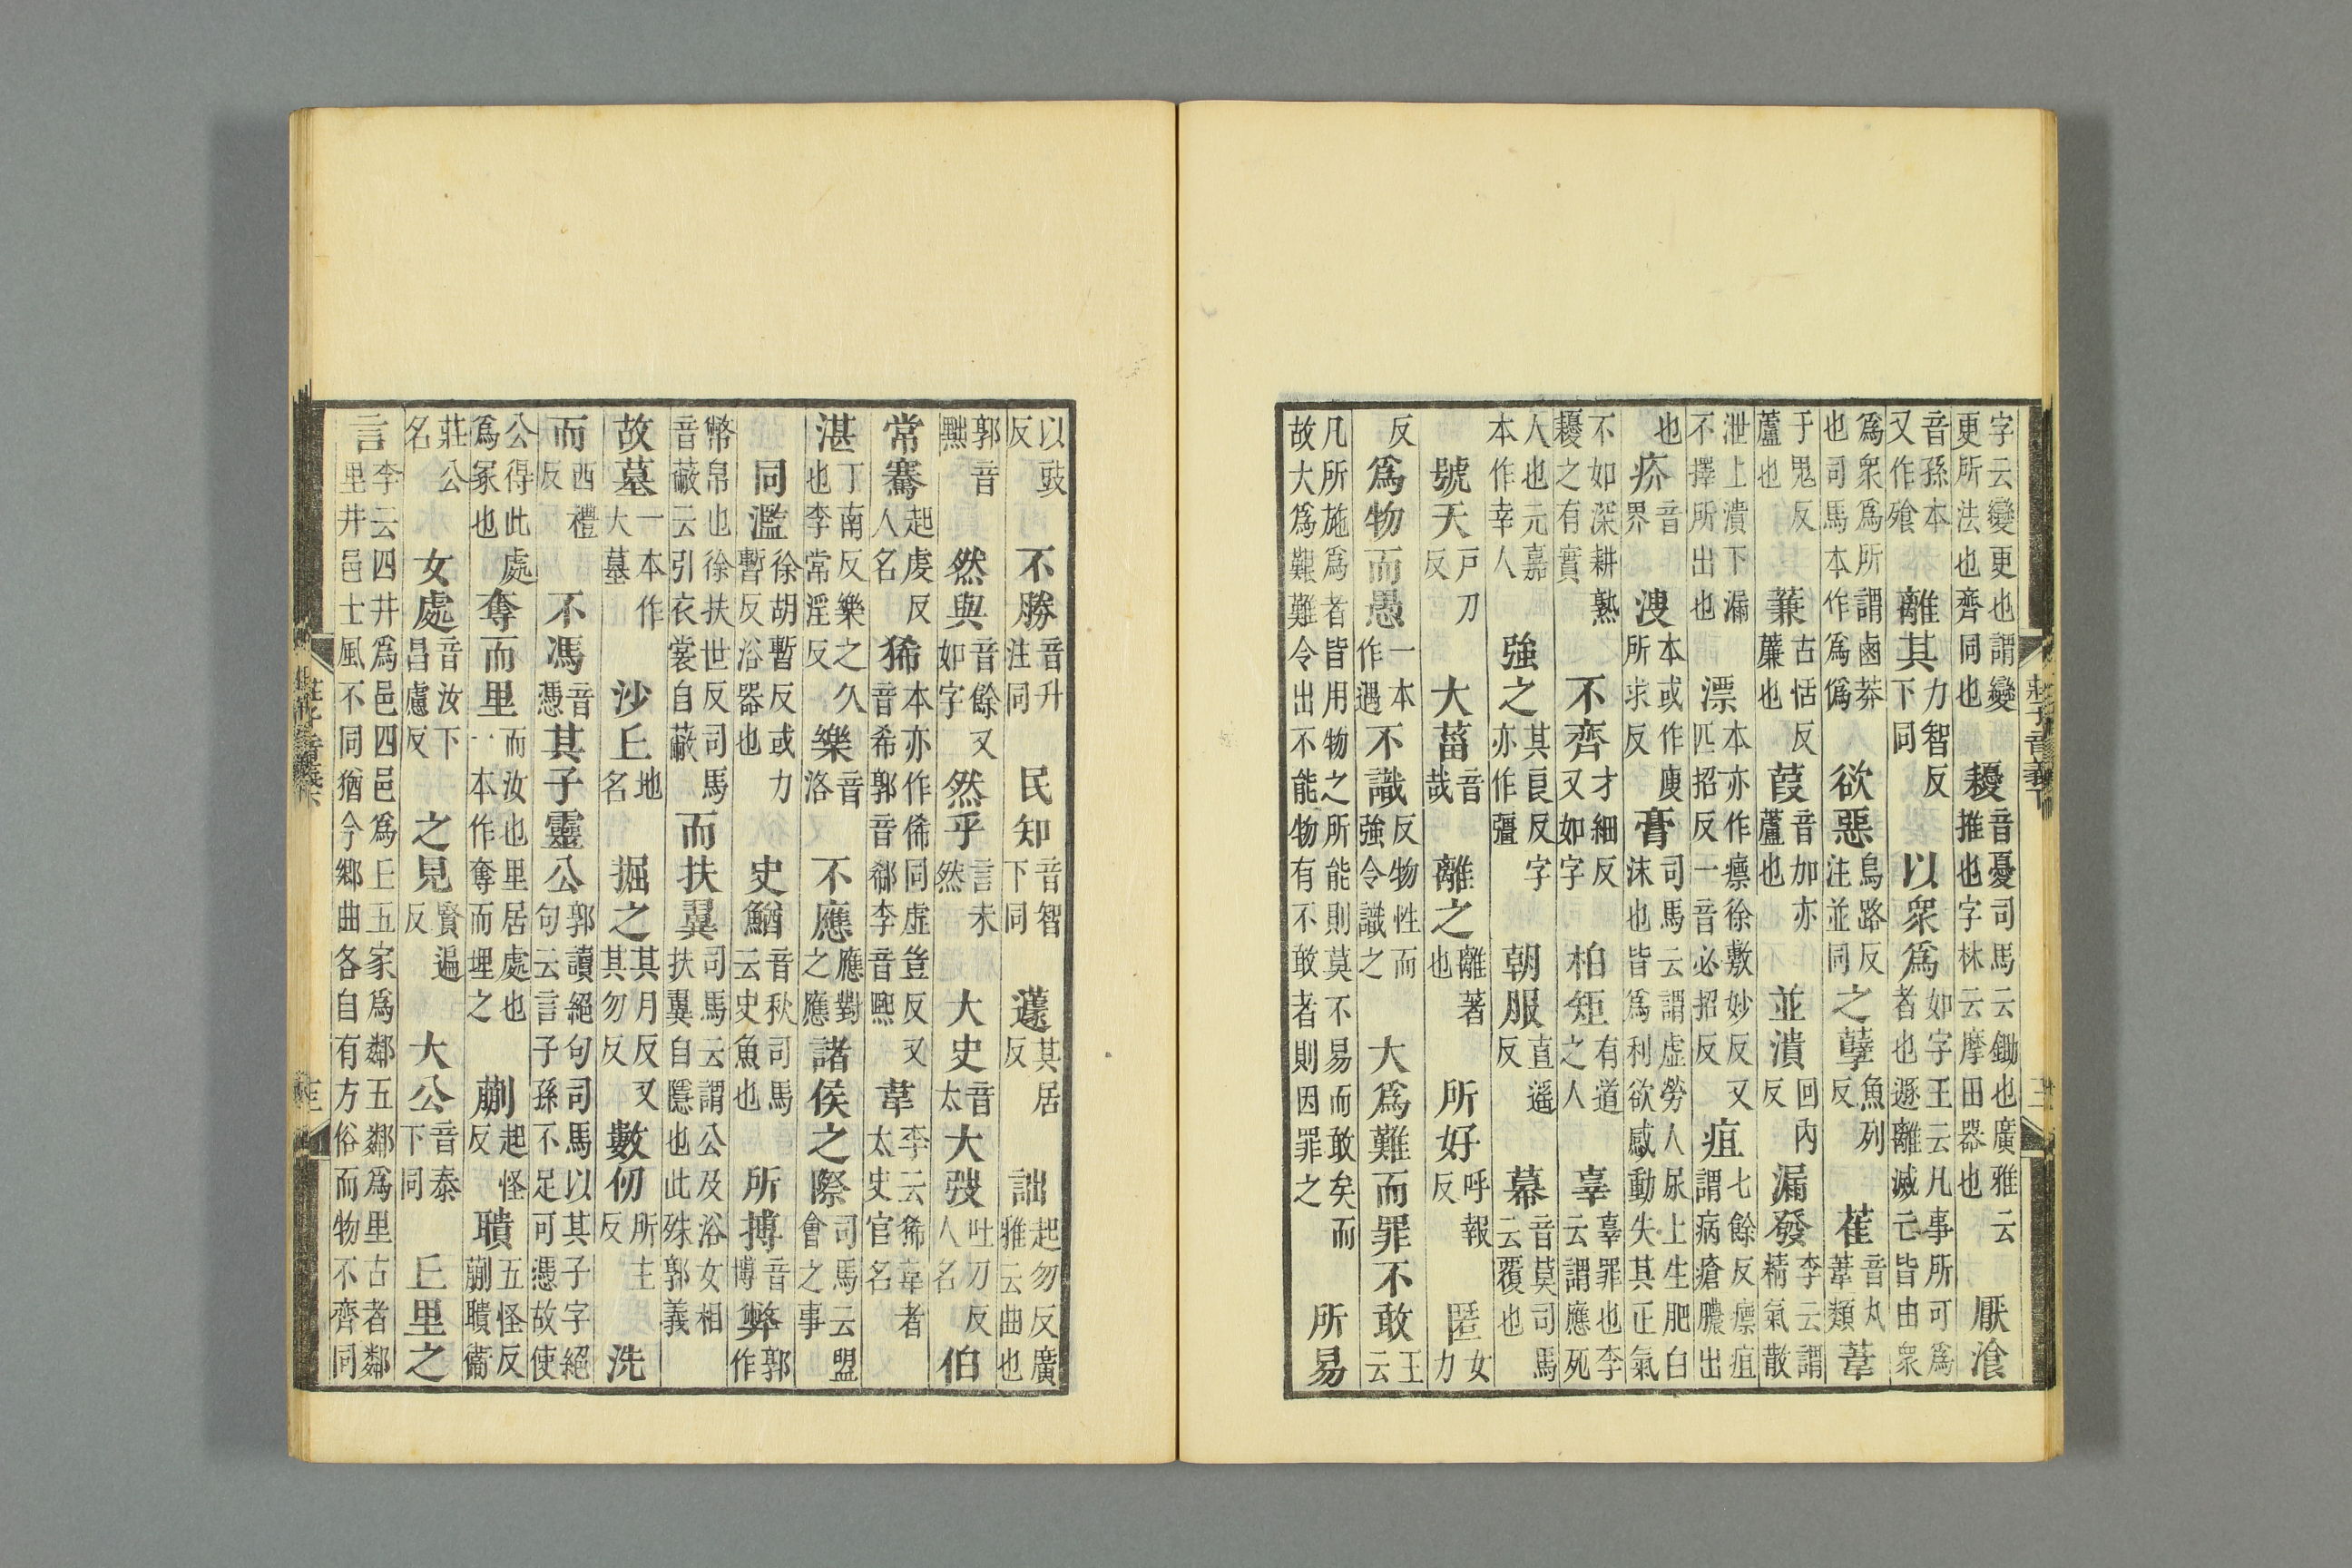 字云變更也謂變更所法也齊同也耰音憂司馬云鋤也廣雅云推也字林云摩田器也厭飡
音孫本又作飱離其力智反下同以衆爲如字王云凡事所可爲者也遯離滅亡皆由衆
爲衆爲所謂鹵莽也司馬本作爲僞欲惡烏路反注並同之孽魚列反萑音丸葦類葦
于鬼反蘆也蒹古恬反薕也葭音加亦蘆也並潰回内反漏發李云謂精氣散
泄上潰下漏不擇所出也漂本亦作癝徐敷妙反又匹招反一音必招反疽七餘反癝疽謂病瘡膿出
也疥音界溲本或作廋所求反膏司馬云謂虛勞人尿上生肥白沬也皆爲利欲感動失其正氣
不如深耕熟耰之有實不齊才細反又如字柏矩有道之人辜辜罪也李云謂應死
人也元嘉本作幸人強之其良反字亦作彊朝服直遥反幕音莫司馬云覆也
號天戸刀反大菑音哉離之離著也所好呼報反匿女力
反爲物而愚一本作遇不識反物性而強令識之大爲難而罪不敢王云
凡所施爲者皆用物之所能則莫不易而敢矣而故大爲艱難令出不能物有不敢者則因罪之所易
莊子音義下
以豉反不勝音升注同民知音智下同蘧其居反詘起勿反廣雅云曲也
郭音黜然與音餘又如字然乎言未然大史音太大弢吐刀反人名伯
常騫起虔反人名狶本亦作俙同虛豈反又音希郭音郗李音熙韋李云狶韋者太史官名
湛丁南反樂之久也李常淫反樂音洛不應應對之應諸侯之際司馬云盟會之事
同濫徐胡暫反或力暫反浴器也史鰌音秋司馬云史魚也所搏音博弊郭作
幣帛也徐扶世反司馬音蔽云引衣裳自蔽而扶翼司馬云謂公及浴女相扶翼自隱也此殊郭義
故墓一本作大墓沙丘地名掘之其月反又其勿反數仞所主反洗
而西禮反不馮音憑其子靈公郭讀絕句司馬以其子字絕句云言子孫不足可憑故使
公得此處爲冢也奪而里而汝也里居處也一本作奪而埋之蒯起怪反聵五怪反蒯聵衞
莊公名女處音汝下昌慮反之見賢遍反大公音泰下同丘里之
言李云四井爲邑四邑爲丘五家爲鄰五鄰爲里古者鄰里井邑士風不同猶今鄉曲各自有方俗而物不齊同